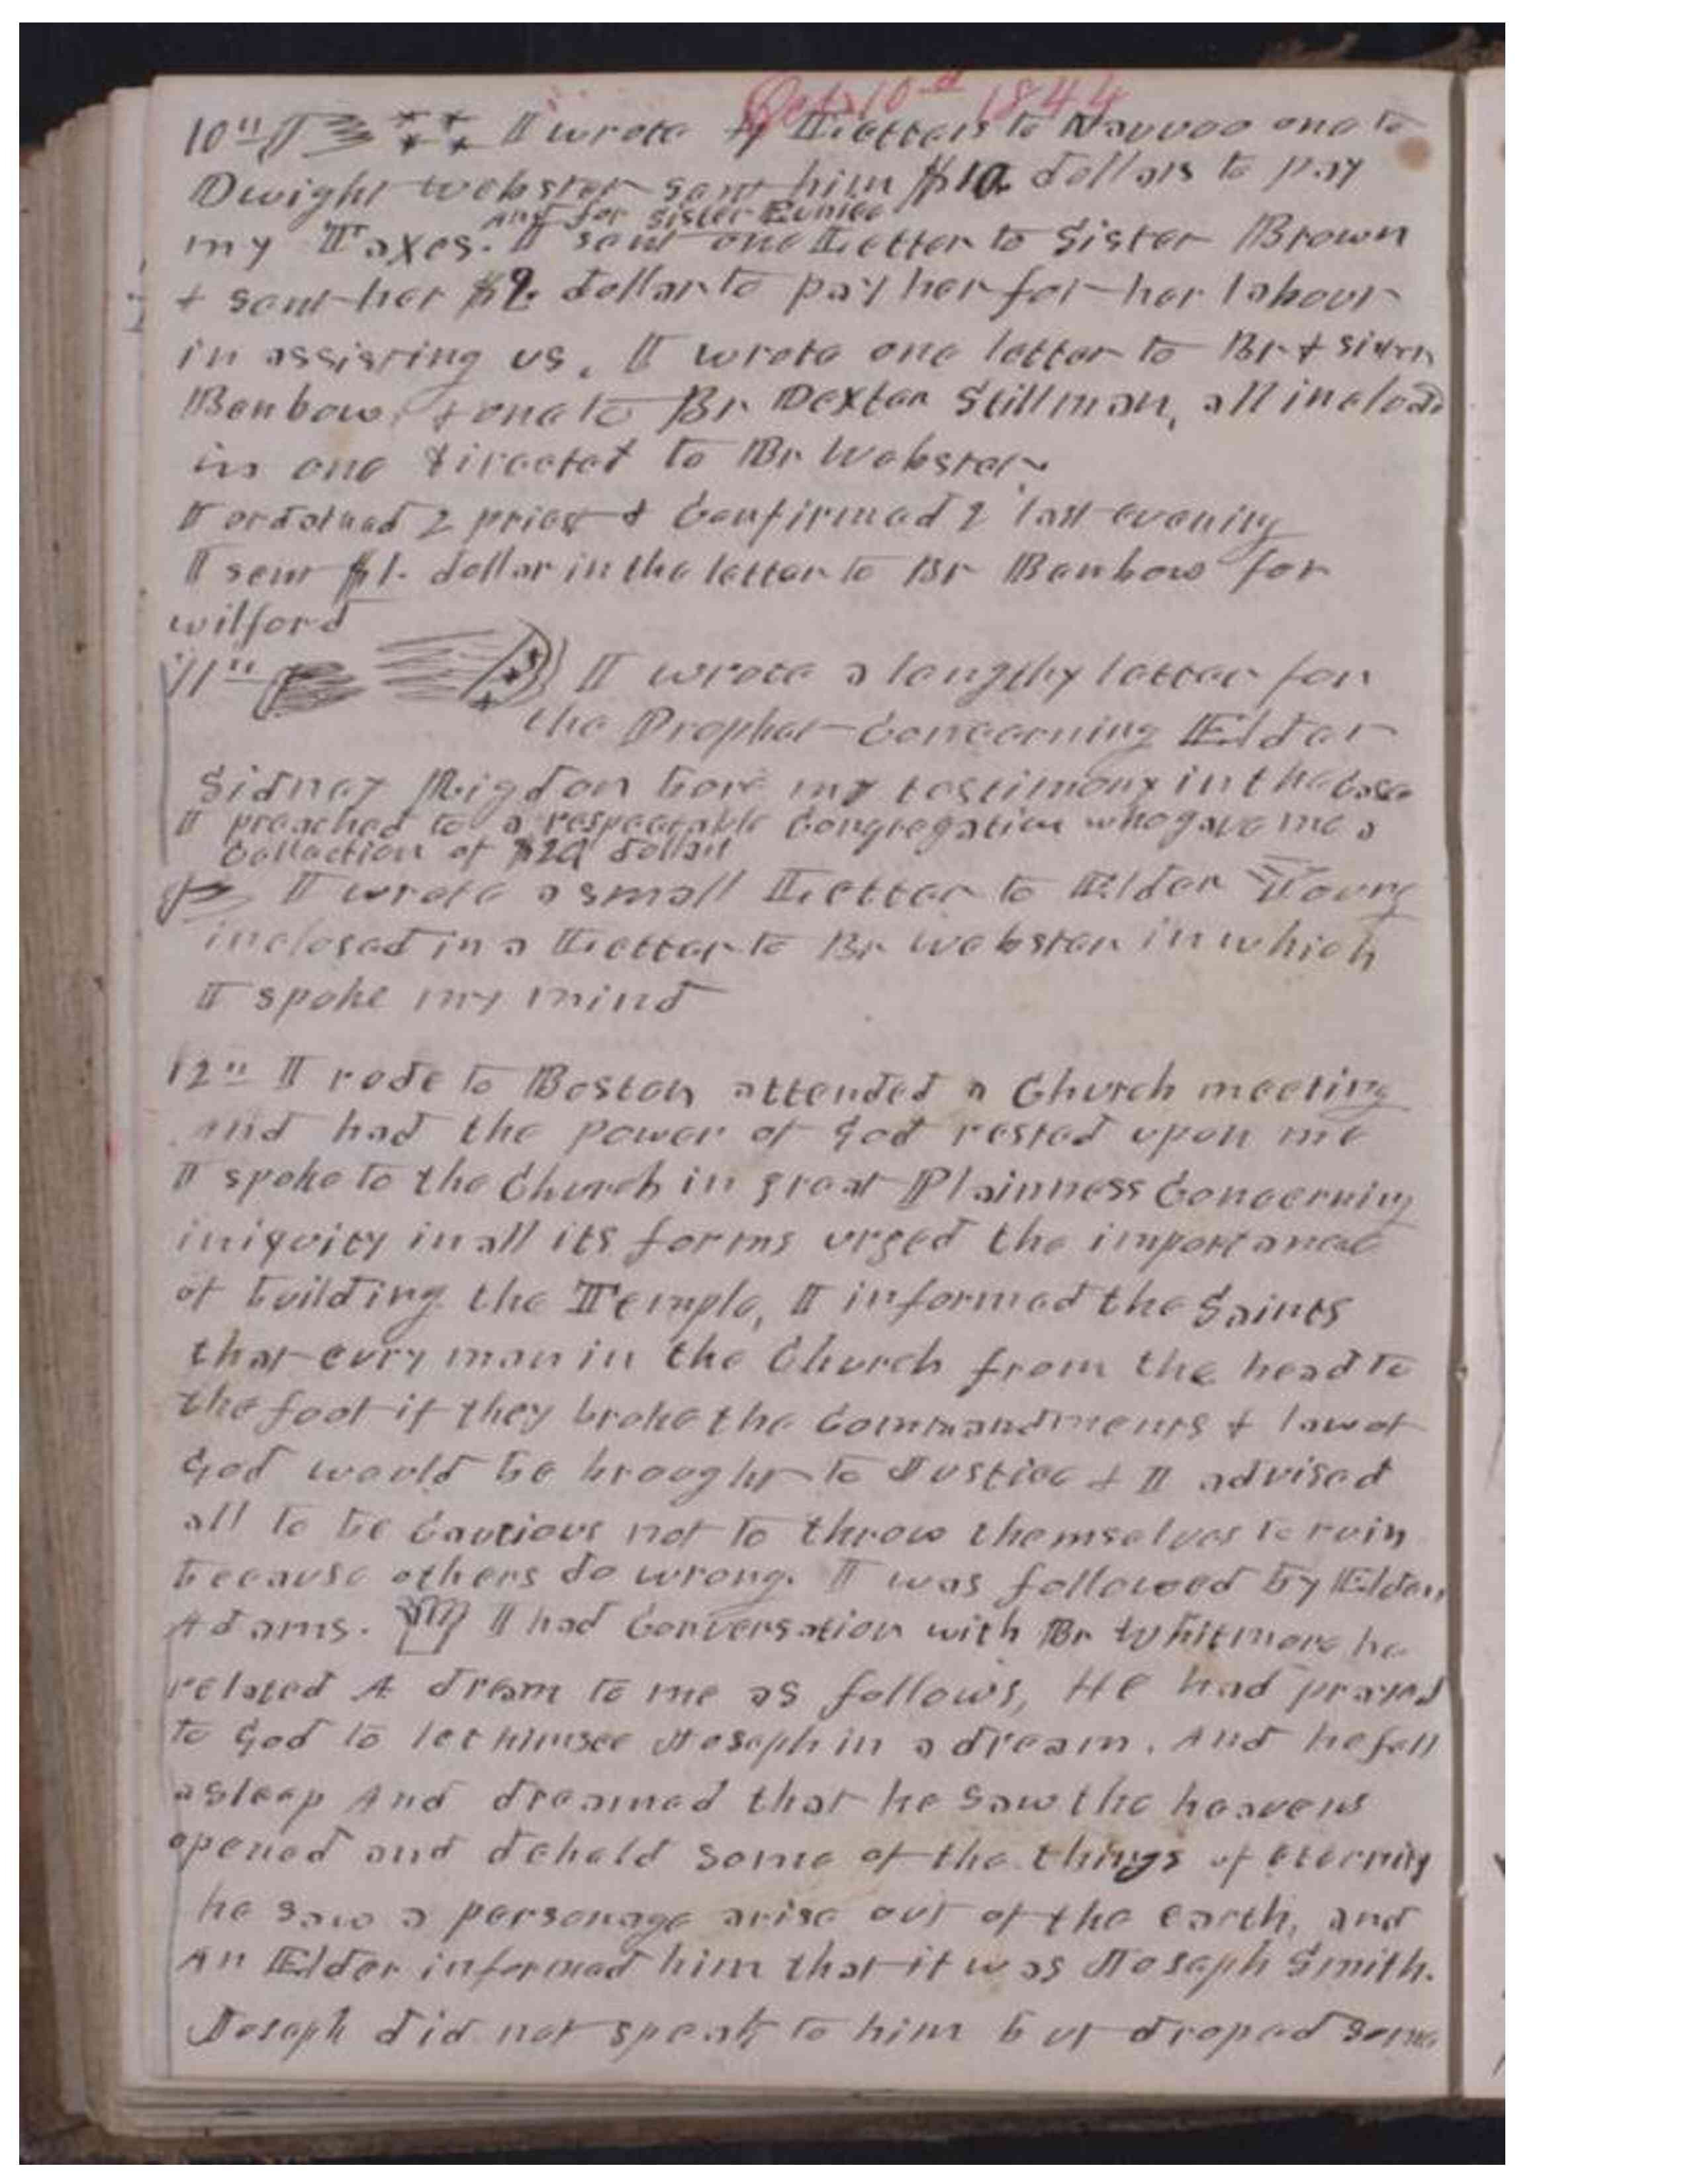 Oct 10th 1844
10th I wrote 4 Letters to Nauvoo one to
Dwight Webster sent him $10. dollars to pay
and for sister Eunice
my Taxes. I sent one Letter to Sister Brown
& sent her $2. dollar to pay her for her labour
in assisting us. I wrote one letter to Br & sister
Benbow, & one to Br Dexter Stillman, all inclosd
in one directed to Br Webster.
I ordained 2 priest & Confirmed 2 last evening
I sent $1. dollar in the letter to Br Benbow for
wilford
11th I wrote a lengthy letter for
the Prophet Concerning Elder
Sidney Rigdon bore my testimony in the case
I preached to a respectable Congregation who gave me a
Collection of dollars
I wrote a small Letter to Elder Young
inclosed in a Letter to Br Webster in which
I spoke my mind
12th I rode to Boston attended a Church meeting
and had the power of God rested upon me
I spoke to the Church in great Plainness Concerning
iniquity in all its forms urged the importance
of building the Temple, I informed the Saints
that evry man in the Church from the head to
the foot if they broke the Commandments & law of
God would be brought to Justice & I advised
all to be Cautious not to throw themselves to ruin
because others do wrong. I was followed by Elder
Adams. I had Conversation with Br Whitmore he
related A dream to me as follows, He had prayed
to God to let him see Joseph in a dream. And he fell
asleep And dreamed that he saw the heavens
opened and beheld some of the things of eternity
he saw a personage arise out of the earth, and
An Elder informed him that it was Joseph Smith.
Joseph did not speak to him but droped some